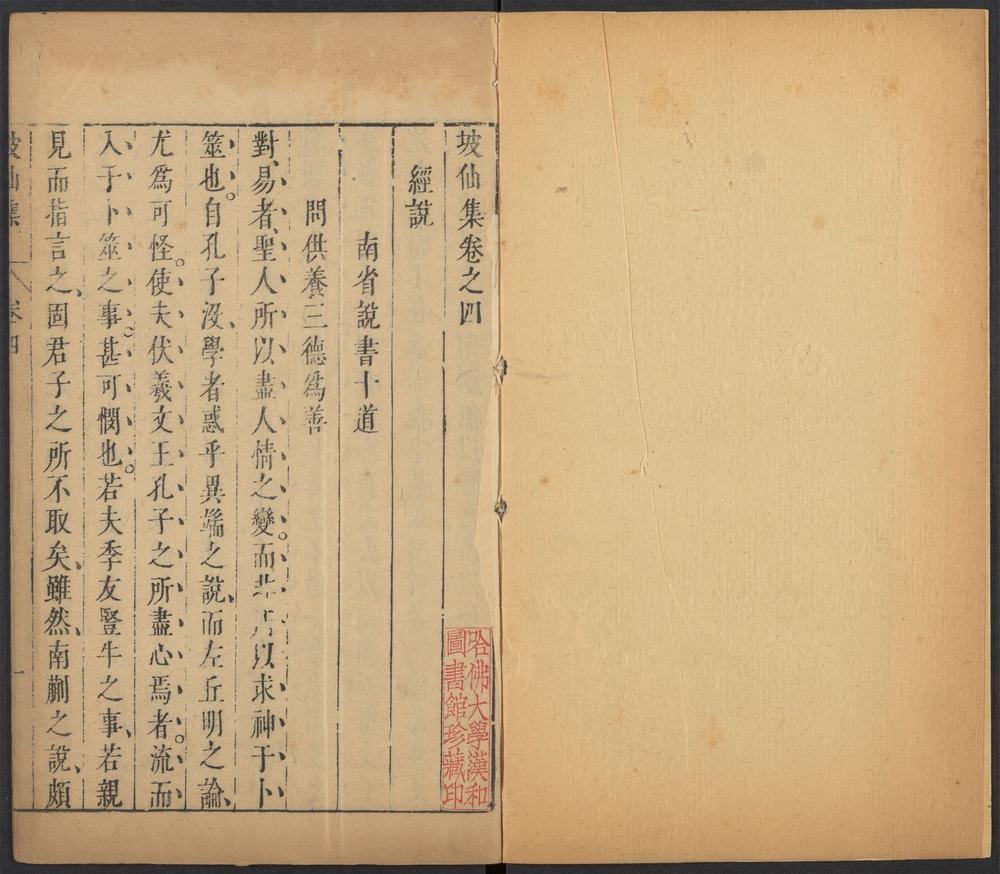 坡仙集卷之四
經說
南省說書十道
問供養三德爲善
對易者聖人所以盡人情之變而非所以求神于卜
筮也自孔子沒學者惑乎異端之說而左丘明之論
尤爲可怪使夫伏羲文王孔子之所盡心焉者流而
入于卜筮之事甚可憫也若夫季友豎牛之事若親
見而指言之固君子之所不取矣雖然南蒯之說頗
坡仙集 卷四 一
哈佛大學漢和
圖書館珍藏印